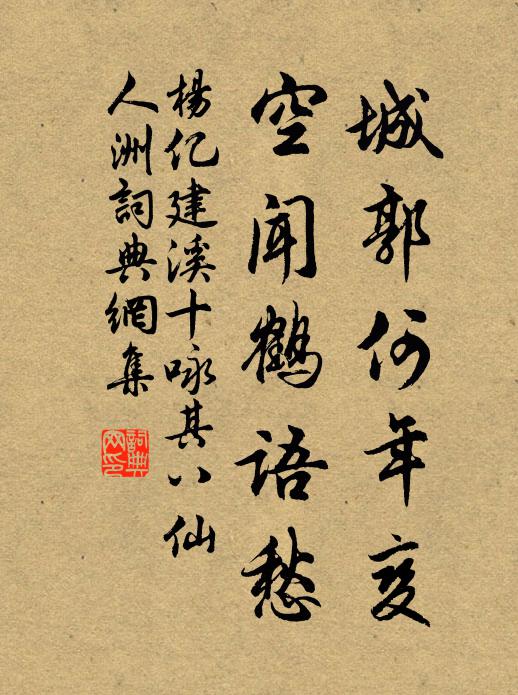 城郭何年变
空闻鹤语愁
楊亿建溪十咏其八仙
人洲詞典網集
詞典网印